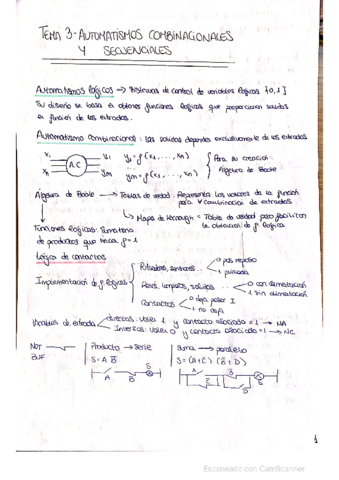 TEMA 3-AUTOMATISMOS COMBINACIONALES
Y SECUENCIALES
Automatismos lógicos → Sistemas de control de variables lógicas {0,1}
Su diseño se basa en obtener funciones lógicas que proporcionan salidas
en función de las entradas.
Automatismo combinacional: las salidas dependen exclusivamente de las entradas
x1 A.C y1 y1 = f(x1, ..., xn) Para su creación:
xn ym ym = f(x1, ..., xn) Álgebra de Boole
Álgebra de Boole → Tablas de verdad: Representa los valores de la función
para ∀ combinación de entradas
→ Mapa de Karnaugh = Tabla de verdad para facilitar
la obtención de f lógica
Funciones lógicas: Sumatorio
de productos que hacen f=1
Lógica de contactos
Implementación de f lógicas
Pulsadores, sensores... 0 pos reposo
1 pulsada
Relés, lámparas, salidas... 0 con alimentación
1 sin alimentación
Contactos 0 deja pasar I
1 no deja
Variables de entrada directas: Valen 1 y contacto asociado = 1 → NA
Inversas: Valen 0 y contacto asociado = 1 → NC
NOT Producto → serie Suma → paralelo
BUF S = A B̅ S = (A+C)·(B̅+D)
A B̅ S A B̅ S
C D
1
Escaneado con CamScanner